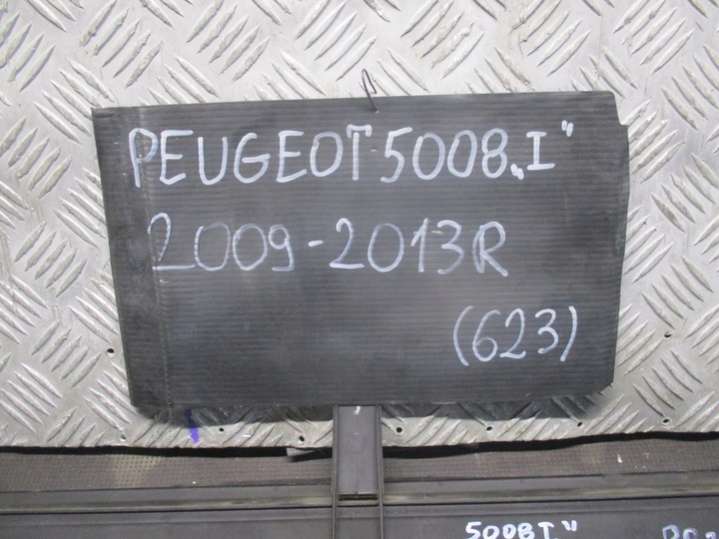 PEUGEOT 5008 „I”
2009-2013R
(623)
5008 I”